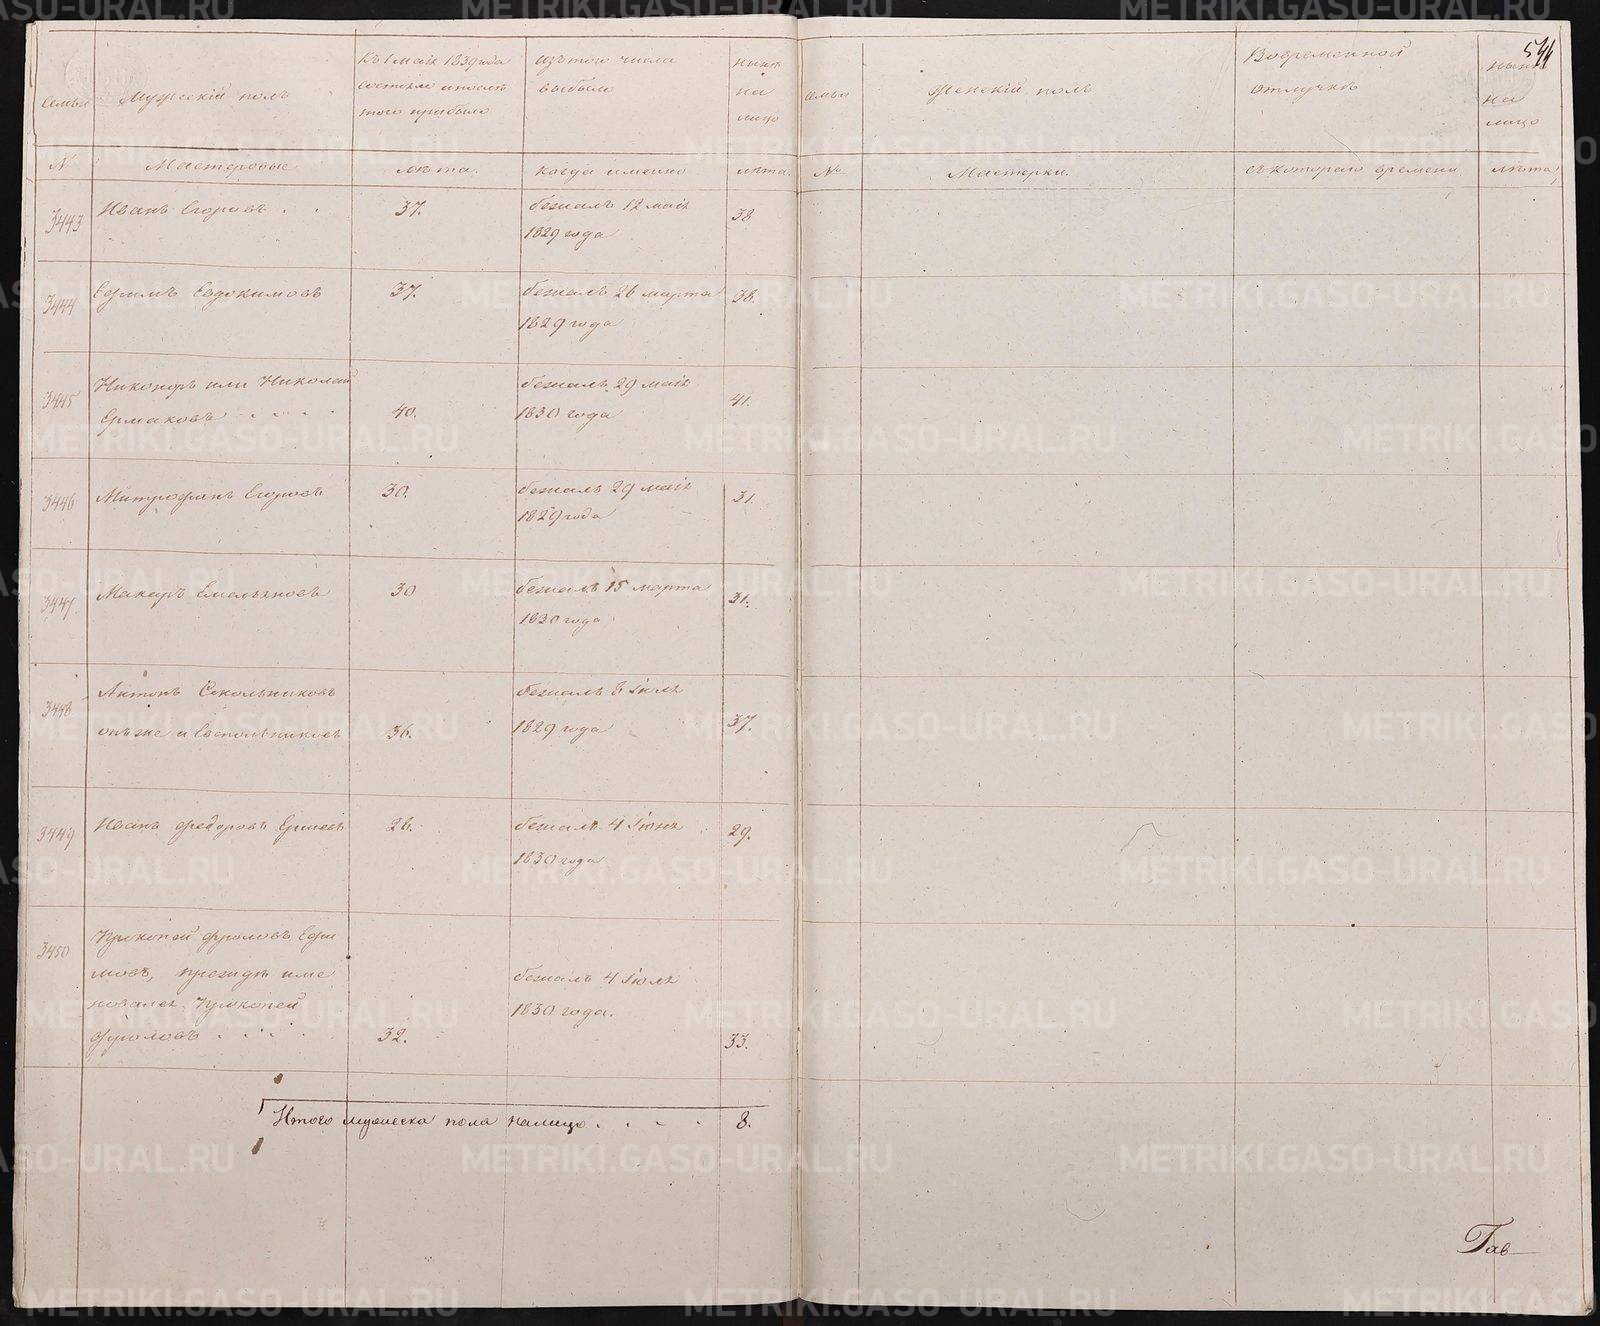 Семьи
Мужескій полъ
Къ 1 маія 1839 года
состояло и послѣ
того прибыло
изъ того числа
выбыло
нынѣ
на
лицо
№
Мастеровые
лѣта.
когда именно
лѣта.
3443
Иванъ Егоровъ . .
37.
бежалъ 12 маія
1829 года
38
3444
Ефимъ Евдокимовъ
37.
бежалъ 26 марта
1829 года
38.
3445
Никоноръ или Николай
Ермаковъ . . . .
40.
бежалъ 29 маія
1830 года
41.
3446
Митрофанъ Егоровъ
30.
бежалъ 29 маія
1829 года
31.
3447
Макаръ Емельяновъ
30
бежалъ 15 марта
1830 года
31.
3448
Антонъ Сокольниковъ
онъ же и
36.
бежалъ 8 Іюля
1829 года
37.
3449
Иванъ Федоровъ
28.
бежалъ 4 Іюня
1830 года
29.
3450
Прокопей Фроловъ Ефи
мовъ, прежде име
новался Прокопей
Фроловъ . . . .
32.
бежалъ 4 Іюля
1830 года.
33.
Итого мужеска пола налицо . . . .
8.
семьи
Женскій полъ
Вовременной
отлучкѣ
нынѣ
на
лицо
544
№
Мастерки.
съ котораго времени
лѣта
Гав
METRIKI.GASO-URAL.RU